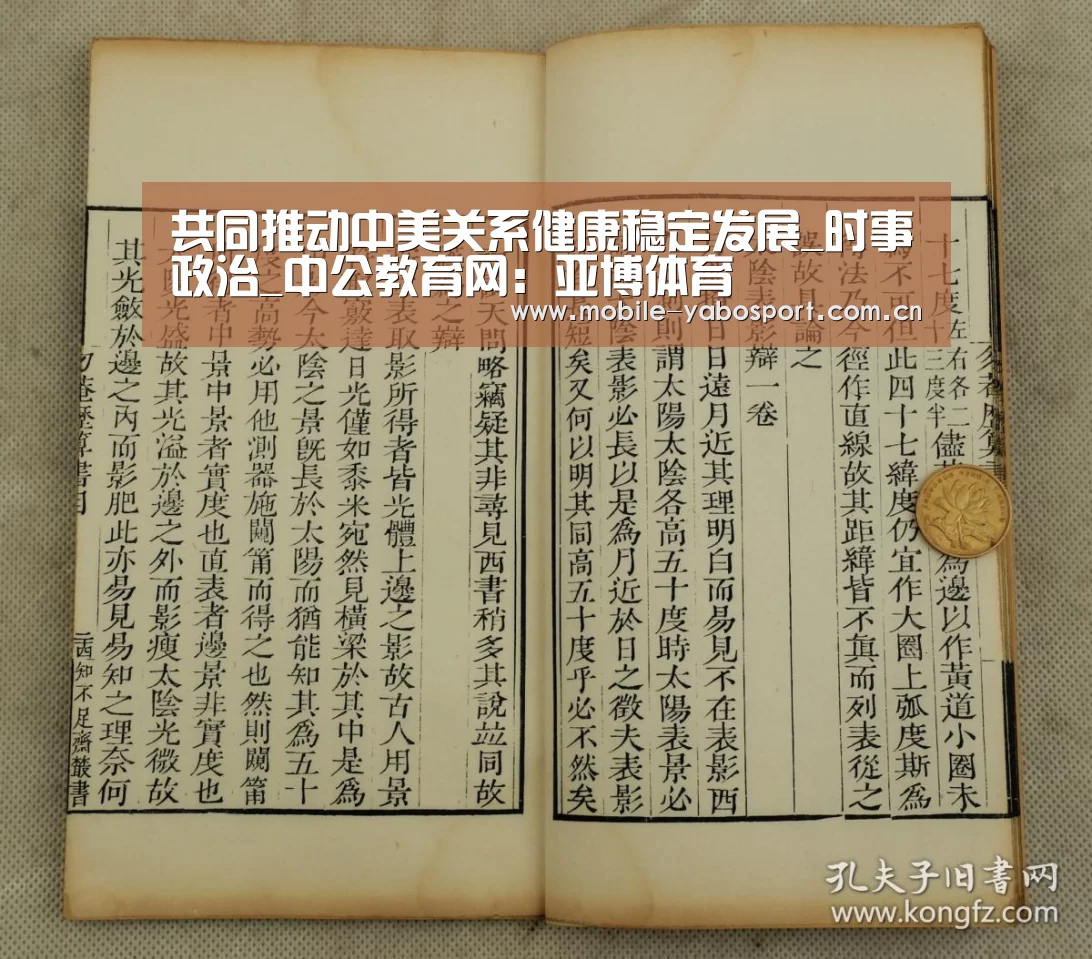 共同推动中美关系健康稳定发展_时事
政治_中公教育网：亚博体育
www.mobile-yabosport.com.cn
十七度左右各二十三度半儘
爲邊以作黃道小圈未
爲不可但此四十七緯度仍宜作大圈上弧度斯爲
法乃今徑作直線故其距緯皆不眞而列表從之
誤故具論之
陰表影辯一卷
日遠月近其理明白而易見不在表影西
則謂太陽太陰各高五十度時太陽表景必
陰表影必長以是爲月近於日之徵夫表影
短矣又何以明其同高五十度乎必不然矣
天問略竊疑其非尋見西書稍多其說竝同故
之辯
表取影所得者皆光體上邊之影故古人用景
達日光僅如黍米宛然見橫梁於其中是爲
今太陰之景旣長於太陽而猶能知其爲五十
之高勢必用他測器施闚筩而得之也然則闚筩
者中景中景者實度也直表者邊景非實度也
光盛故其光溢於邊之外而影瘦太陰光微故
其光斂於邊之內而影肥此亦易見易知之理奈何
勿菴歷算書目
知不足齋叢書
孔夫子旧书网
www.kongfz.com